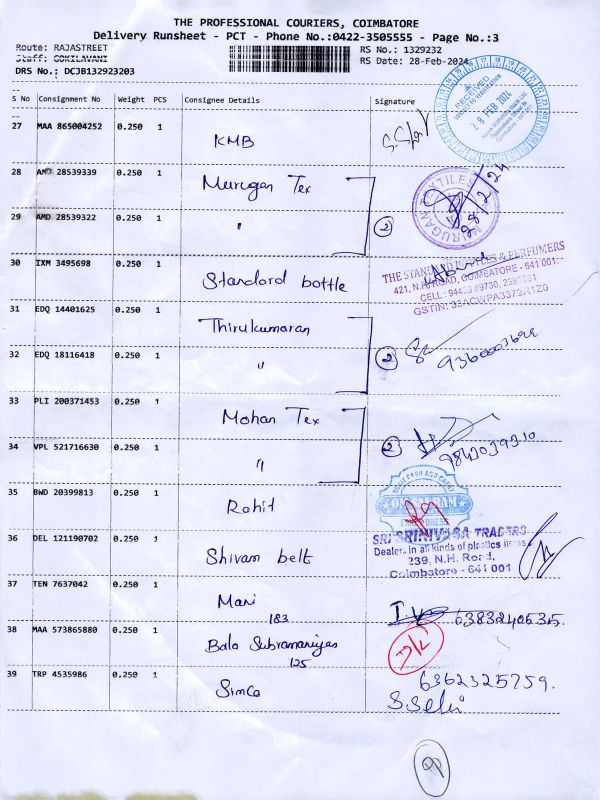 THE PROFESSIONAL COURIERS, COIMBATORE
Delivery Runsheet - PCT - Phone No.:0422-3505555 - Page No.:3
Route: RAJASTREET RS No.: 1329232
Staff: GOKILAVANI RS Date: 28-Feb-2024
DRS No.: DCJB132923203
RECEIVED
28 FEB 2024
S No Consignment No Weight PCS Consignee Details Signature
27 MAA 865004252 0.250 1 KMB
28 AMD 28539339 0.250 1 Murugan Tex
MURUGAN TEXTILES
28/2/24
29 AMD 28539322 0.250 1 " 2
30 IXM 3495698 0.250 1 Standord bottle
THE STANDARD BOTTLES & PERFUMERS
421, N.H. ROAD, COIMBATORE - 641 001.
31 EDQ 14401625 0.250 1 Thirukumaran
32 EDQ 18116418 0.250 1 " 2
33 PLI 200371453 0.250 1 Mohan Tex
34 VPL 521716630 0.250 1 " 2
35 BWD 20399813 0.250 1 Rohit
36 DEL 121190702 0.250 1 Shivam belt
SRI SRINIVASA TRADERS
Dealers in all kinds of plastics items
239, N.H. Road,
Coimbatore - 641 001
37 TEN 7637042 0.250 1 Mani
183
38 MAA 573865880 0.250 1 Bala Subramaniyan
125
39 TRP 4535986 0.250 1 Simco 6362325759.
S.Selvi